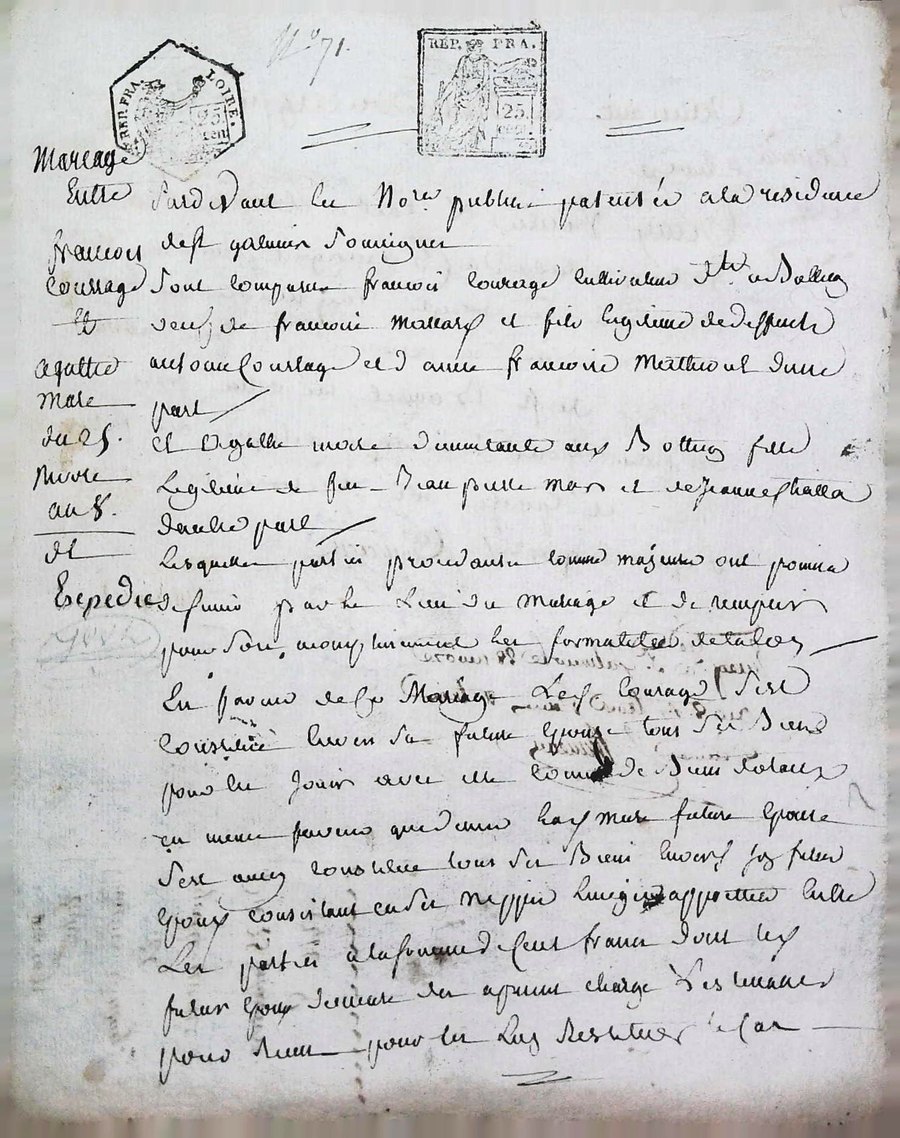 No 71.
REP. FRA. LOIRE.
25 cen
REP. FRA.
25 cen.
Mareage
Entre
francois
Courage
Et
agathe
Mare
du 25.
Nivose
an 8.
dt
Expedie
Pardevant les Nore. public patentés a la residence
de st galmier soussignes
sont comparu francois Courage Cultivateur
veuf de francois et fils legitime de deffunts
antoine Courage et d'anne francoise Mathevot d'une
part
et Agathe mare demeurante aux Bottus fille
Legitime de feu Jean pierre mare et de Jeanne
d'autre part
Lesquelles parties procedantes comme majeures ont promis
de s'unir par le Lien du Mariage et de remplir
pour son les formalités de la loy
En faveur de ce Mariage Led. Courage s'est
Constitué envers sa future Epouse tous ses Biens
pour les Jouir avec elle comme de Biens dotaux
en meme faveur que dessus lad. Mare future Epouse
s'est aussy constitué tous ses Biens envers son futur
Epoux consistant en ses nippes Linges apprettiés entre
Les parties a la somme de Cent francs dont led.
futur Epoux demeure des a present chargé
pour pour les Luy Restituer le Cas